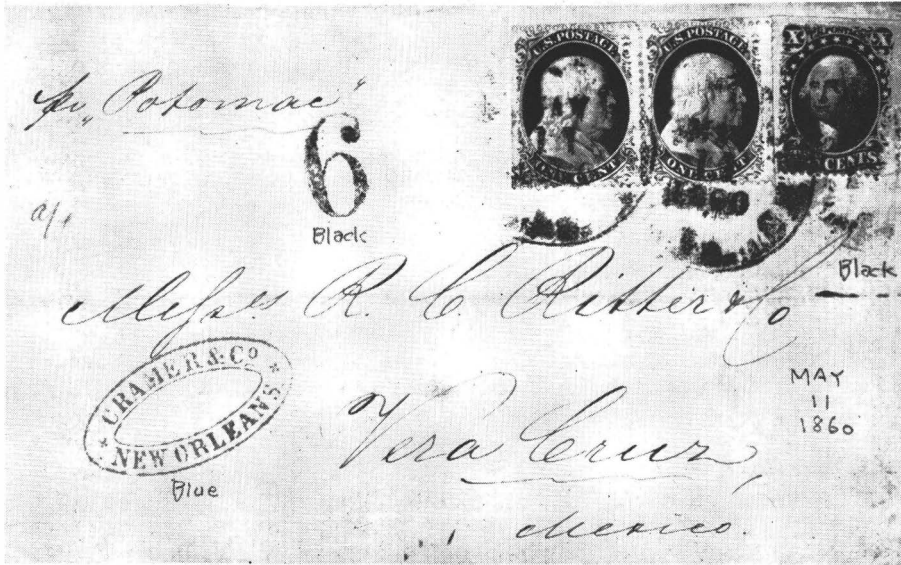 U.S. POSTAGE
ONE CENT
U.S. POSTAGE
ONE CENT
X X
CENTS
pr „Potomac"
6
Black
1860
Black
a/.
Messrs R. C. Ritter & Co
CRAMER & Co
NEW ORLEANS
Blue
MAY
11
1860
Vera Cruz,
Mexico.